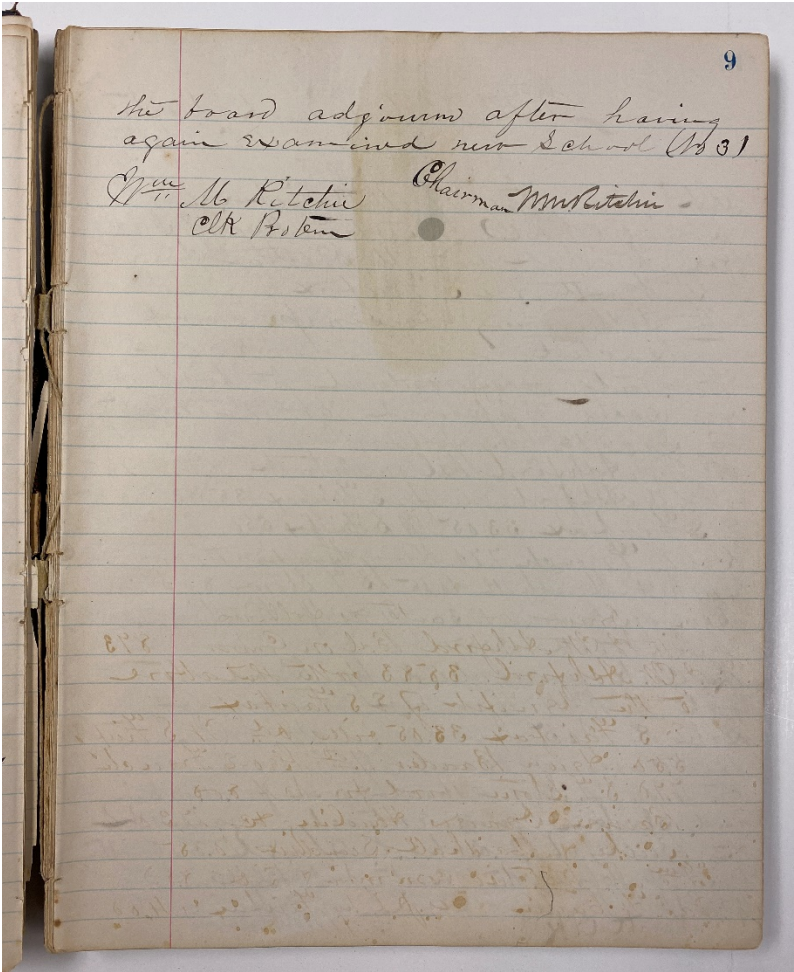 9
the board adjourn after having
again examined new School (No 3)
Wm M Ritchie
Chairman Wm Ritchie
Clk Protem